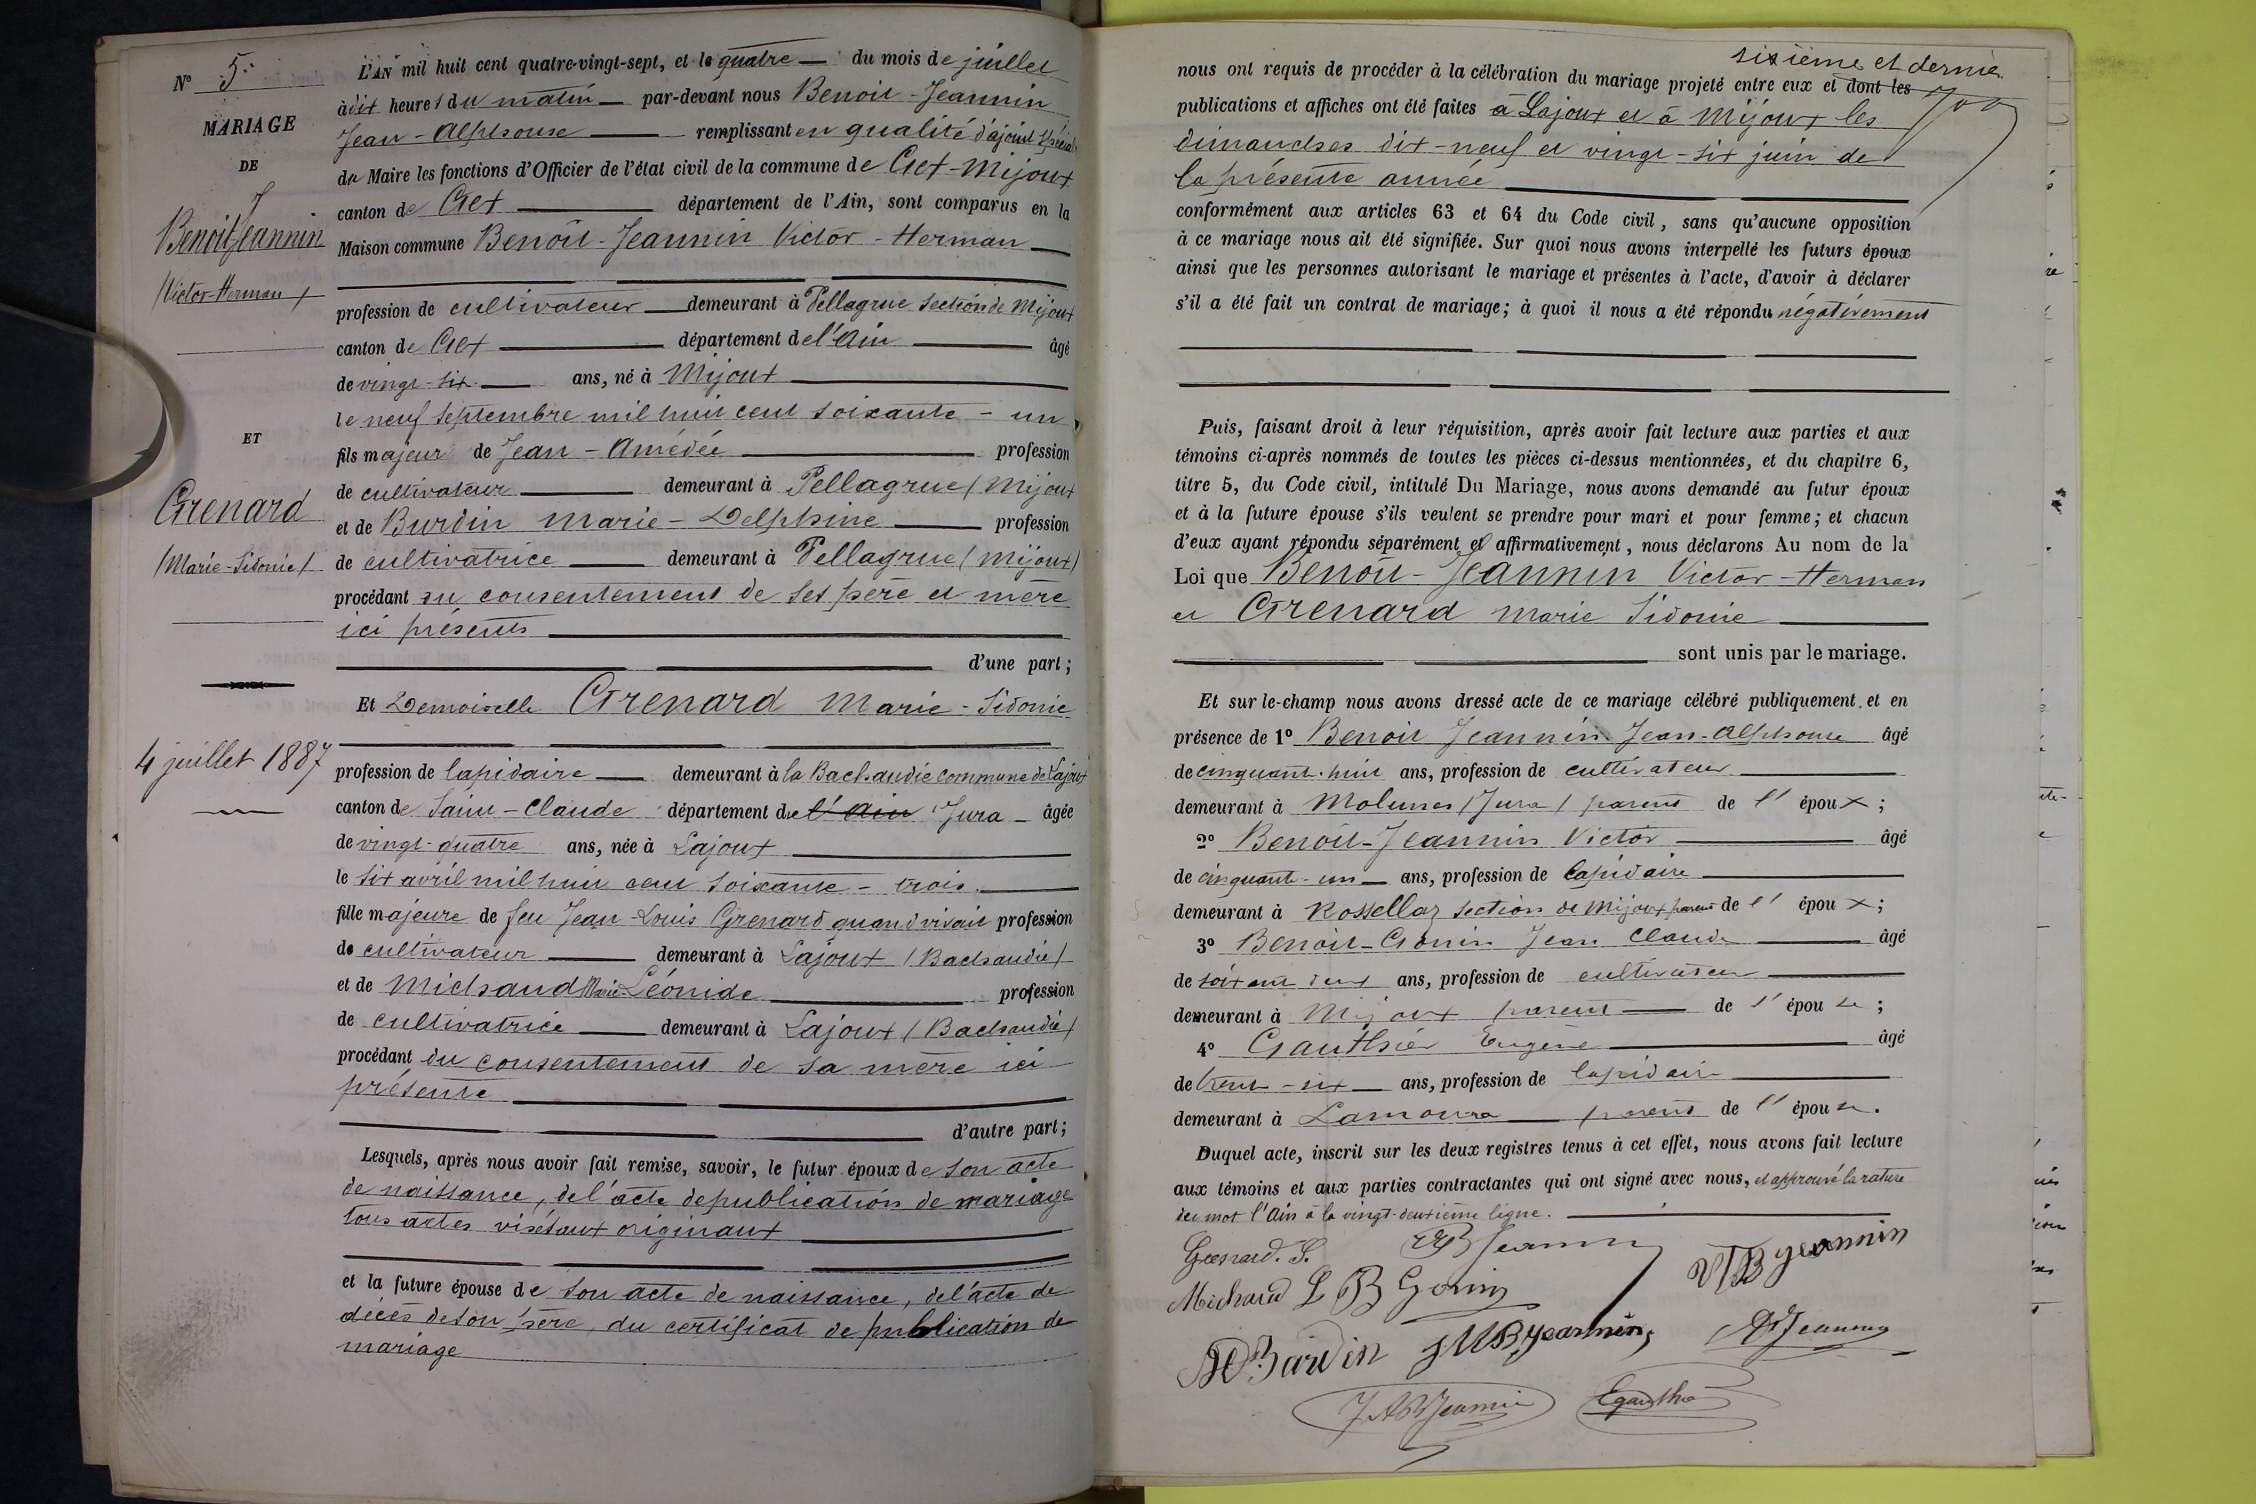 N° 5
MARIAGE
DE
Benoit Jeannin
(Victor-Herman)
ET
Grenard
(Marie-Sidonie)
4 juillet 1887
L'AN mil huit cent quatre-vingt-sept, et le quatre du mois de juillet
à dix heures du matin par-devant nous Benoit-Jeannin
Jean-Alphonse remplissant en qualité d'ajoint spécial
du Maire les fonctions d'Officier de l'état civil de la commune de Gex-Mijoux
canton de Gex département de l'Ain, sont comparus en la
Maison commune Benoit-Jeannin Victor-Herman
profession de cultivateur demeurant à Pellagrue section de Mijoux
canton de Gex département de l'Ain âgé
de vingt-six ans, né à Mijoux
le neuf septembre mil huit cent soixante-un
fils majeur de Jean-Amédée profession
de cultivateur demeurant à Pellagrue (Mijoux
et de Burdin Marie-Delphine profession
de cultivatrice demeurant à Pellagrue (Mijoux)
procédant du consentement de ses père et mère
ici présents
d'une part;
Et Demoiselle Grenard Marie-Sidonie
profession de lapidaire demeurant à la Bachaudie commune de Lajoux
canton de Saint-Claude département de l'Ain Jura âgée
de vingt-quatre ans, née à Lajoux
le six avril mil huit cent soixante-trois
fille majeure de feu Jean-Louis Grenard quand vivait profession
de cultivateur demeurant à Lajoux (Bachaudie)
et de Michaud Marie-Léonide profession
de cultivatrice demeurant à Lajoux (Bachaudie)
procédant du consentement de sa mère ici
présente
d'autre part;
Lesquels, après nous avoir fait remise, savoir, le futur époux de son acte
de naissance, de l'acte de publication de mariage
tous actes visés aux originaux
et la future épouse de son acte de naissance, de l'acte de
décès de son père, du certificat de publication de
mariage
sixième et dernié
nous ont requis de procéder à la célébration du mariage projeté entre eux et dont les
publications et affiches ont été faites à Lajoux et à Mijoux les
dimanches dix-neuf et vingt-six juin de
la présente année
conformément aux articles 63 et 64 du Code civil, sans qu'aucune opposition
à ce mariage nous ait été signifiée. Sur quoi nous avons interpellé les futurs époux
ainsi que les personnes autorisant le mariage et présentes à l'acte, d'avoir à déclarer
s'il a été fait un contrat de mariage; à quoi il nous a été répondu négativement
Puis, faisant droit à leur réquisition, après avoir fait lecture aux parties et aux
témoins ci-après nommés de toutes les pièces ci-dessus mentionnées, et du chapitre 6,
titre 5, du Code civil, intitulé Du Mariage, nous avons demandé au futur époux
et à la future épouse s'ils veulent se prendre pour mari et pour femme; et chacun
d'eux ayant répondu séparément et affirmativement, nous déclarons Au nom de la
Loi que Benoit-Jeannin Victor-Herman
et Grenard Marie Sidonie
sont unis par le mariage.
Et sur-le-champ nous avons dressé acte de ce mariage célébré publiquement et en
présence de 1° Benoit Jeannin Jean-Alphonse âgé
de cinquante-huit ans, profession de cultivateur
demeurant à Molunes (Jura) parent de l'époux;
2° Benoit-Jeannin Victor âgé
de cinquante-un ans, profession de lapidaire
demeurant à Rossellaz section de Mijoux parent de l'époux;
3° Benoit-Gonin Jean Claude âgé
de soixante deux ans, profession de cultivateur
demeurant à Mijoux parent de l'épouse;
4° Gauthier Eugène âgé
de trente-six ans, profession de lapidaire
demeurant à Lamoura parent de l'épouse.
Duquel acte, inscrit sur les deux registres tenus à cet effet, nous avons fait lecture
aux témoins et aux parties contractantes qui ont signé avec nous, et approuvé la rature
du mot l'Ain à la vingt-deuxième ligne.
Grenard. S. Jeannin VHBJeannin
Michaud L B Gonin
MD Burdin JMBJeannin ABJeannin
JABJeannin Egauthier